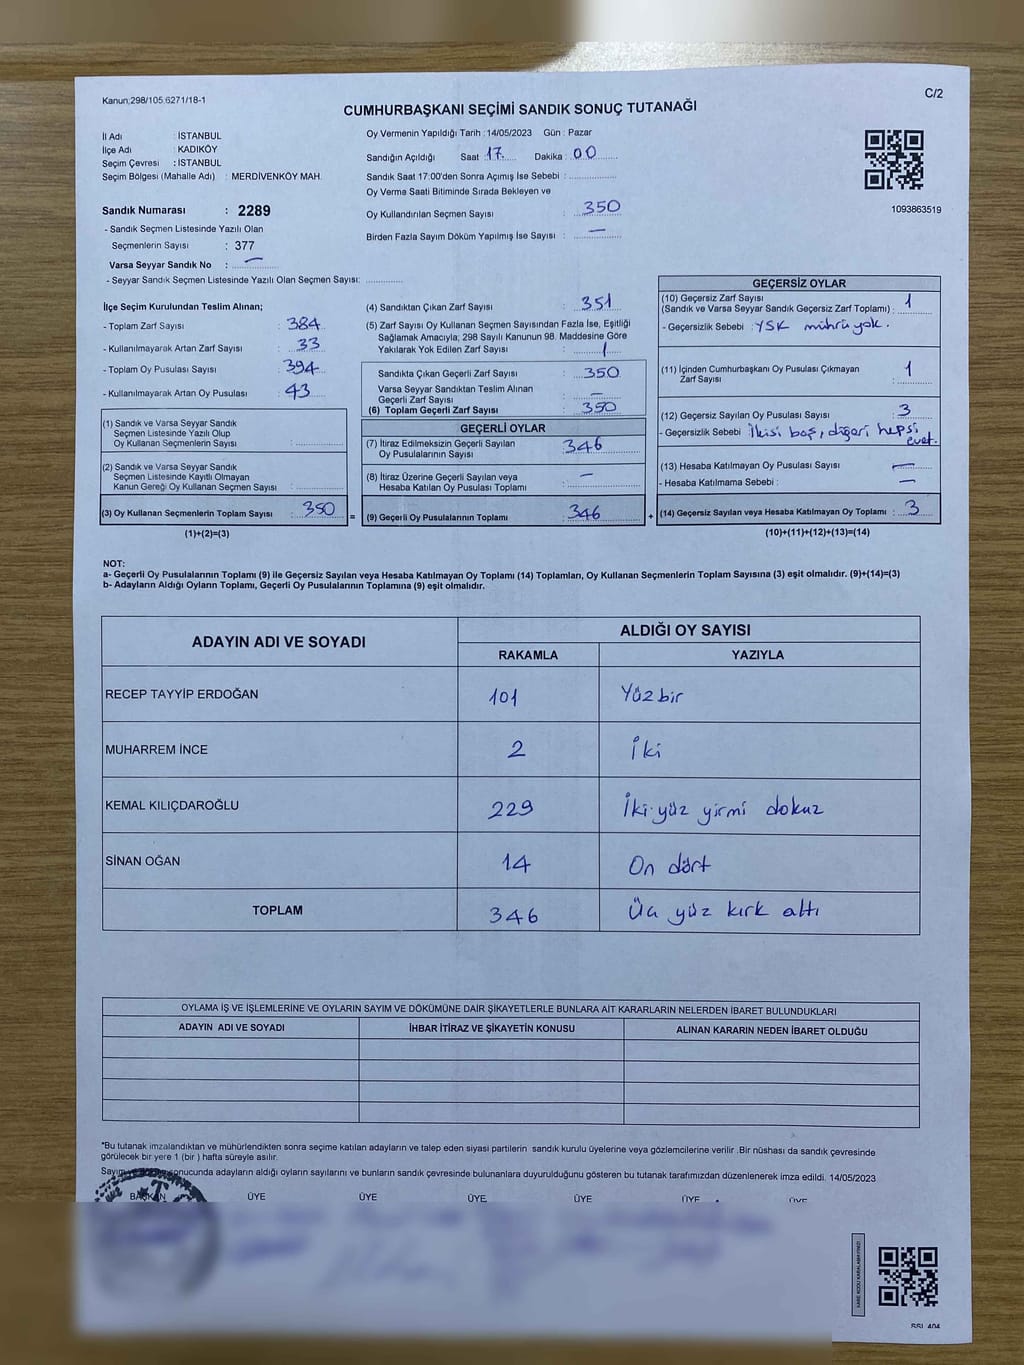 Kanun;298/105.6271/18-1
C/2
CUMHURBAŞKANI SEÇİMİ SANDIK SONUÇ TUTANAĞI
İl Adı : İSTANBUL
İlçe Adı : KADIKÖY
Seçim Çevresi : İSTANBUL
Seçim Bölgesi (Mahalle Adı) : MERDİVENKÖY MAH.
Sandık Numarası : 2289
- Sandık Seçmen Listesinde Yazılı Olan
Seçmenlerin Sayısı : 377
Varsa Seyyar Sandık No : —
- Seyyar Sandık Seçmen Listesinde Yazılı Olan Seçmen Sayısı:
Oy Vermenin Yapıldığı Tarih : 14/05/2023 Gün : Pazar
Sandığın Açıldığı Saat 17 Dakika : 00
Sandık Saat 17:00'den Sonra Açımış İse Sebebi :
Oy Verme Saati Bitiminde Sırada Bekleyen ve
Oy Kullandırılan Seçmen Sayısı : 350
Birden Fazla Sayım Döküm Yapılmış İse Sayısı : —
1093863519
İlçe Seçim Kurulundan Teslim Alınan;
- Toplam Zarf Sayısı : 384
- Kullanılmayarak Artan Zarf Sayısı : 33
- Toplam Oy Pusulası Sayısı : 394
- Kullanılmayarak Artan Oy Pusulası : 43
(1) Sandık ve Varsa Seyyar Sandık
Seçmen Listesinde Yazılı Olup
Oy Kullanan Seçmenlerin Sayısı :
(2) Sandık ve Varsa Seyyar Sandık
Seçmen Listesinde Kayıtlı Olmayan
Kanun Gereği Oy Kullanan Seçmen Sayısı :
(3) Oy Kullanan Seçmenlerin Toplam Sayısı : 350
(1)+(2)=(3)
=
(4) Sandıktan Çıkan Zarf Sayısı : 351
(5) Zarf Sayısı Oy Kullanan Seçmen Sayısından Fazla İse, Eşitliği
Sağlamak Amacıyla; 298 Sayılı Kanunun 98. Maddesine Göre
Yakılarak Yok Edilen Zarf Sayısı : 1
Sandıkta Çıkan Geçerli Zarf Sayısı : 350
Varsa Seyyar Sandıktan Teslim Alınan
Geçerli Zarf Sayısı : —
(6) Toplam Geçerli Zarf Sayısı : 350
GEÇERLİ OYLAR
(7) İtiraz Edilmeksizin Geçerli Sayılan
Oy Pusulalarının Sayısı : 346
(8) İtiraz Üzerine Geçerli Sayılan veya
Hesaba Katılan Oy Pusulası Toplamı : —
(9) Geçerli Oy Pusulalarının Toplamı : 346
+
GEÇERSİZ OYLAR
(10) Geçersiz Zarf Sayısı
(Sandık ve Varsa Seyyar Sandık Geçersiz Zarf Toplamı) : 1
- Geçersizlik Sebebi : YSK mührü yok.
(11) İçinden Cumhurbaşkanı Oy Pusulası Çıkmayan
Zarf Sayısı : 1
(12) Geçersiz Sayılan Oy Pusulası Sayısı : 3
- Geçersizlik Sebebi : İkisi boş, diğeri hepsi
evet.
(13) Hesaba Katılmayan Oy Pusulası Sayısı : —
- Hesaba Katılmama Sebebi : —
(14) Geçersiz Sayılan veya Hesaba Katılmayan Oy Toplamı : 3
(10)+(11)+(12)+(13)=(14)
NOT:
a- Geçerli Oy Pusulalarının Toplamı (9) ile Geçersiz Sayılan veya Hesaba Katılmayan Oy Toplamı (14) Toplamları, Oy Kullanan Seçmenlerin Toplam Sayısına (3) eşit olmalıdır. (9)+(14)=(3)
b- Adayların Aldığı Oyların Toplamı, Geçerli Oy Pusulalarının Toplamına (9) eşit olmalıdır.
ADAYIN ADI VE SOYADI
ALDIĞI OY SAYISI
RAKAMLA YAZIYLA
RECEP TAYYİP ERDOĞAN 101 Yüz bir
MUHARREM İNCE 2 İki
KEMAL KILIÇDAROĞLU 229 İki yüz yirmi dokuz
SİNAN OĞAN 14 On dört
TOPLAM 346 Üç yüz kırk altı
OYLAMA İŞ VE İŞLEMLERİNE VE OYLARIN SAYIM VE DÖKÜMÜNE DAİR ŞİKAYETLERLE BUNLARA AİT KARARLARIN NELERDEN İBARET BULUNDUKLARI
ADAYIN ADI VE SOYADI İHBAR İTİRAZ VE ŞİKAYETİN KONUSU ALINAN KARARIN NEDEN İBARET OLDUĞU
*Bu tutanak imzalandıktan ve mühürlendikten sonra seçime katılan adayların ve talep eden siyasi partilerin sandık kurulu üyelerine veya gözlemcilerine verilir .Bir nüshası da sandık çevresinde
görülecek bir yere 1 (bir ) hafta süreyle asılır.
sonucunda adayların aldığı oyların sayılarını ve bunların sandık çevresinde bulunanlara duyurulduğunu gösteren bu tutanak tarafımızdan düzenlenerek imza edildi. 14/05/2023
BAŞKAN ÜYE ÜYE ÜYE ÜYE ÜYE ÜYE